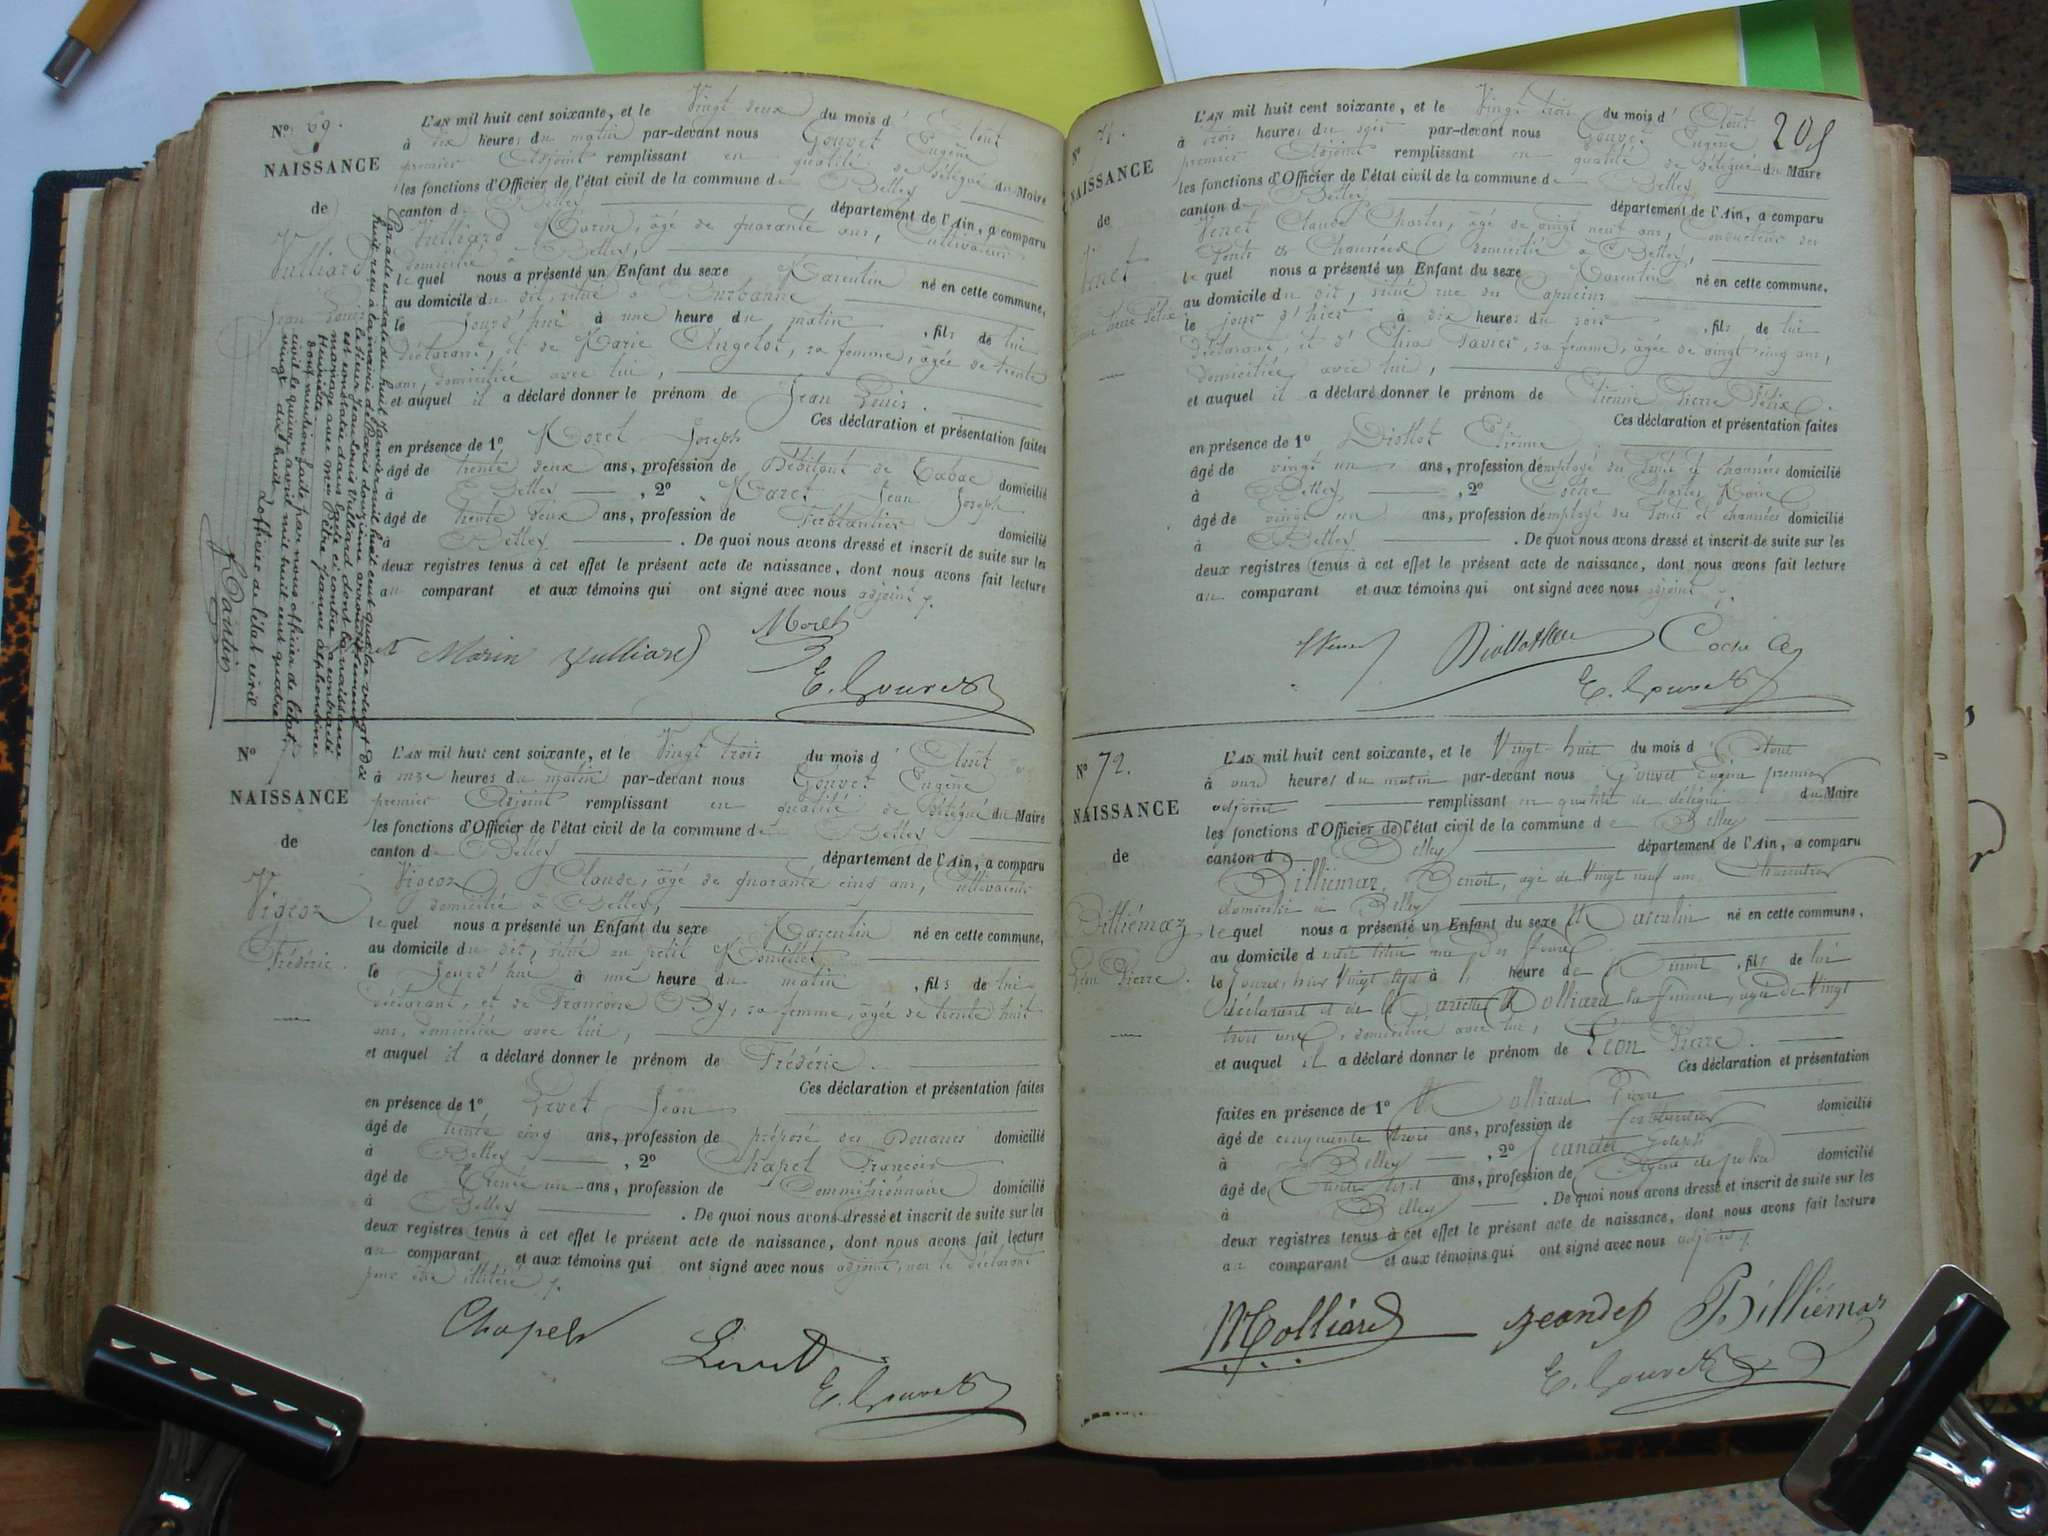 Nº 69.
NAISSANCE
de
Vulliard
Jean Louis
L'AN mil huit cent soixante, et le Vingt deux du mois d' Août
à dix heures du matin par-devant nous Gouvet Eugène
premier Adjoint remplissant en qualité de délégué du Maire
les fonctions d'Officier de l'état civil de la commune de Belley
canton de Belley département de l'Ain, a comparu
Vulliard Marin, âgé de quarante ans, Cultivateur
domicilié à Belley,
lequel nous a présenté un Enfant du sexe Masculin né en cette commune,
au domicile du dit, situé à
le jourd'hui à une heure du matin, fils de lui
déclarant, et de Marie Angelot, sa femme, âgée de trente
ans, domiciliée avec lui,
et auquel il a déclaré donner le prénom de Jean Louis.
Ces déclaration et présentation faites
en présence de 1º Morel Joseph
âgé de trente deux ans, profession de Débitant de Tabac domicilié
à Belley, 2º Jean Joseph
âgé de trente deux ans, profession de Ferblantier domicilié
à Belley. De quoi nous avons dressé et inscrit de suite sur les
deux registres tenus à cet effet le présent acte de naissance, dont nous avons fait lecture
au comparant et aux témoins qui ont signé avec nous adjoint.
Par acte en date du huit Janvier mil huit cent quatre vingt dix
huit reçu à la mairie de Paris douzième arrondissement
le sieur Jean Louis Vulliard dont la naissance
est constatée dans l'acte ci contre a contracté
mariage avec Mme Jeanne Alphonsine
Henriette
dont mention faite par nous officier de l'état
civil le quinze avril mil huit cent quatre
vingt dix huit
L'officier de l'état civil
Marin Vulliard
Morel
E. Gouvet
Nº
NAISSANCE
de
Vigeoz
Frédéric.
L'AN mil huit cent soixante, et le Vingt trois du mois d' Août
à onze heures du matin par-devant nous Gouvet Eugène
premier Adjoint remplissant en qualité de délégué du Maire
les fonctions d'Officier de l'état civil de la commune de Belley
canton de Belley département de l'Ain, a comparu
Vigeoz Claude, âgé de quarante cinq ans, Cultivateur
domicilié à Belley,
lequel nous a présenté un Enfant du sexe Masculin né en cette commune,
au domicile du dit, situé au petit
le jourd'hui à une heure du matin, fils de lui
déclarant, et de Françoise By, sa femme, âgée de trente huit
ans, domiciliée avec lui,
et auquel il a déclaré donner le prénom de Frédéric.
Ces déclaration et présentation faites
en présence de 1º Livet Jean
âgé de trente cinq ans, profession de préposé des Douanes domicilié
à Belley, 2º Chapel François
âgé de trente un ans, profession de Commissionnaire domicilié
à Belley. De quoi nous avons dressé et inscrit de suite sur les
deux registres tenus à cet effet le présent acte de naissance, dont nous avons fait lecture
au comparant et aux témoins qui ont signé avec nous adjoint, non le déclarant
pour être illitéré.
Chapel
Livet
E. Gouvet
205
Nº 71.
NAISSANCE
de
L'AN mil huit cent soixante, et le Vingt trois du mois d' Août
à trois heures du soir par-devant nous Gouvet Eugène
premier Adjoint remplissant en qualité de délégué du Maire
les fonctions d'Officier de l'état civil de la commune de Belley
canton de Belley département de l'Ain, a comparu
Claude Charles, âgé de vingt neuf ans, Conducteur des
Ponts & Chaussées domicilié à Belley,
lequel nous a présenté un Enfant du sexe Masculin né en cette commune,
au domicile du dit, situé rue des Capucins
le jour d'hier à dix heures du soir, fils de lui
déclarant, et d' sa femme, âgée de vingt cinq ans,
domiciliée avec lui,
et auquel il a déclaré donner le prénom de Etienne Pierre Félix.
Ces déclaration et présentation faites
en présence de 1º Diollot Etienne
âgé de vingt un ans, profession d'employé des Ponts et chaussées domicilié
à Belley, 2º Coche Charles
âgé de vingt un ans, profession d'employé des Ponts et chaussées domicilié
à Belley. De quoi nous avons dressé et inscrit de suite sur les
deux registres tenus à cet effet le présent acte de naissance, dont nous avons fait lecture
au comparant et aux témoins qui ont signé avec nous adjoint.
E. Gouvet
Nº 72.
NAISSANCE
de
Billiémaz
Léon Pierre.
L'AN mil huit cent soixante, et le Vingt-huit du mois d' Août
à onze heures du matin par-devant nous Gouvet Eugène premier
adjoint remplissant en qualité de délégué du Maire
les fonctions d'Officier de l'état civil de la commune de Belley
canton de Belley département de l'Ain, a comparu
Billiémaz, Benoit, âgé de Vingt neuf ans
domicilié à Belley
lequel nous a présenté un Enfant du sexe Masculin né en cette commune,
au domicile du dit situé rue
le jour d'hier Vingt sept à heure de, fils de lui
déclarant et de Mariette Molliard sa femme, âgée de Vingt
trois ans, domiciliée avec lui,
et auquel il a déclaré donner le prénom de Léon Pierre.
Ces déclaration et présentation
faites en présence de 1º Molliard Pierre
âgé de cinquante trois ans, profession de domicilié
à Belley, 2º Jeandet Joseph
âgé de trente ans, profession de Agent de police domicilié
à Belley. De quoi nous avons dressé et inscrit de suite sur les
deux registres tenus à cet effet le présent acte de naissance, dont nous avons fait lecture
au comparant et aux témoins qui ont signé avec nous adjoint.
Molliard
Jeandet
Billiémaz
E. Gouvet